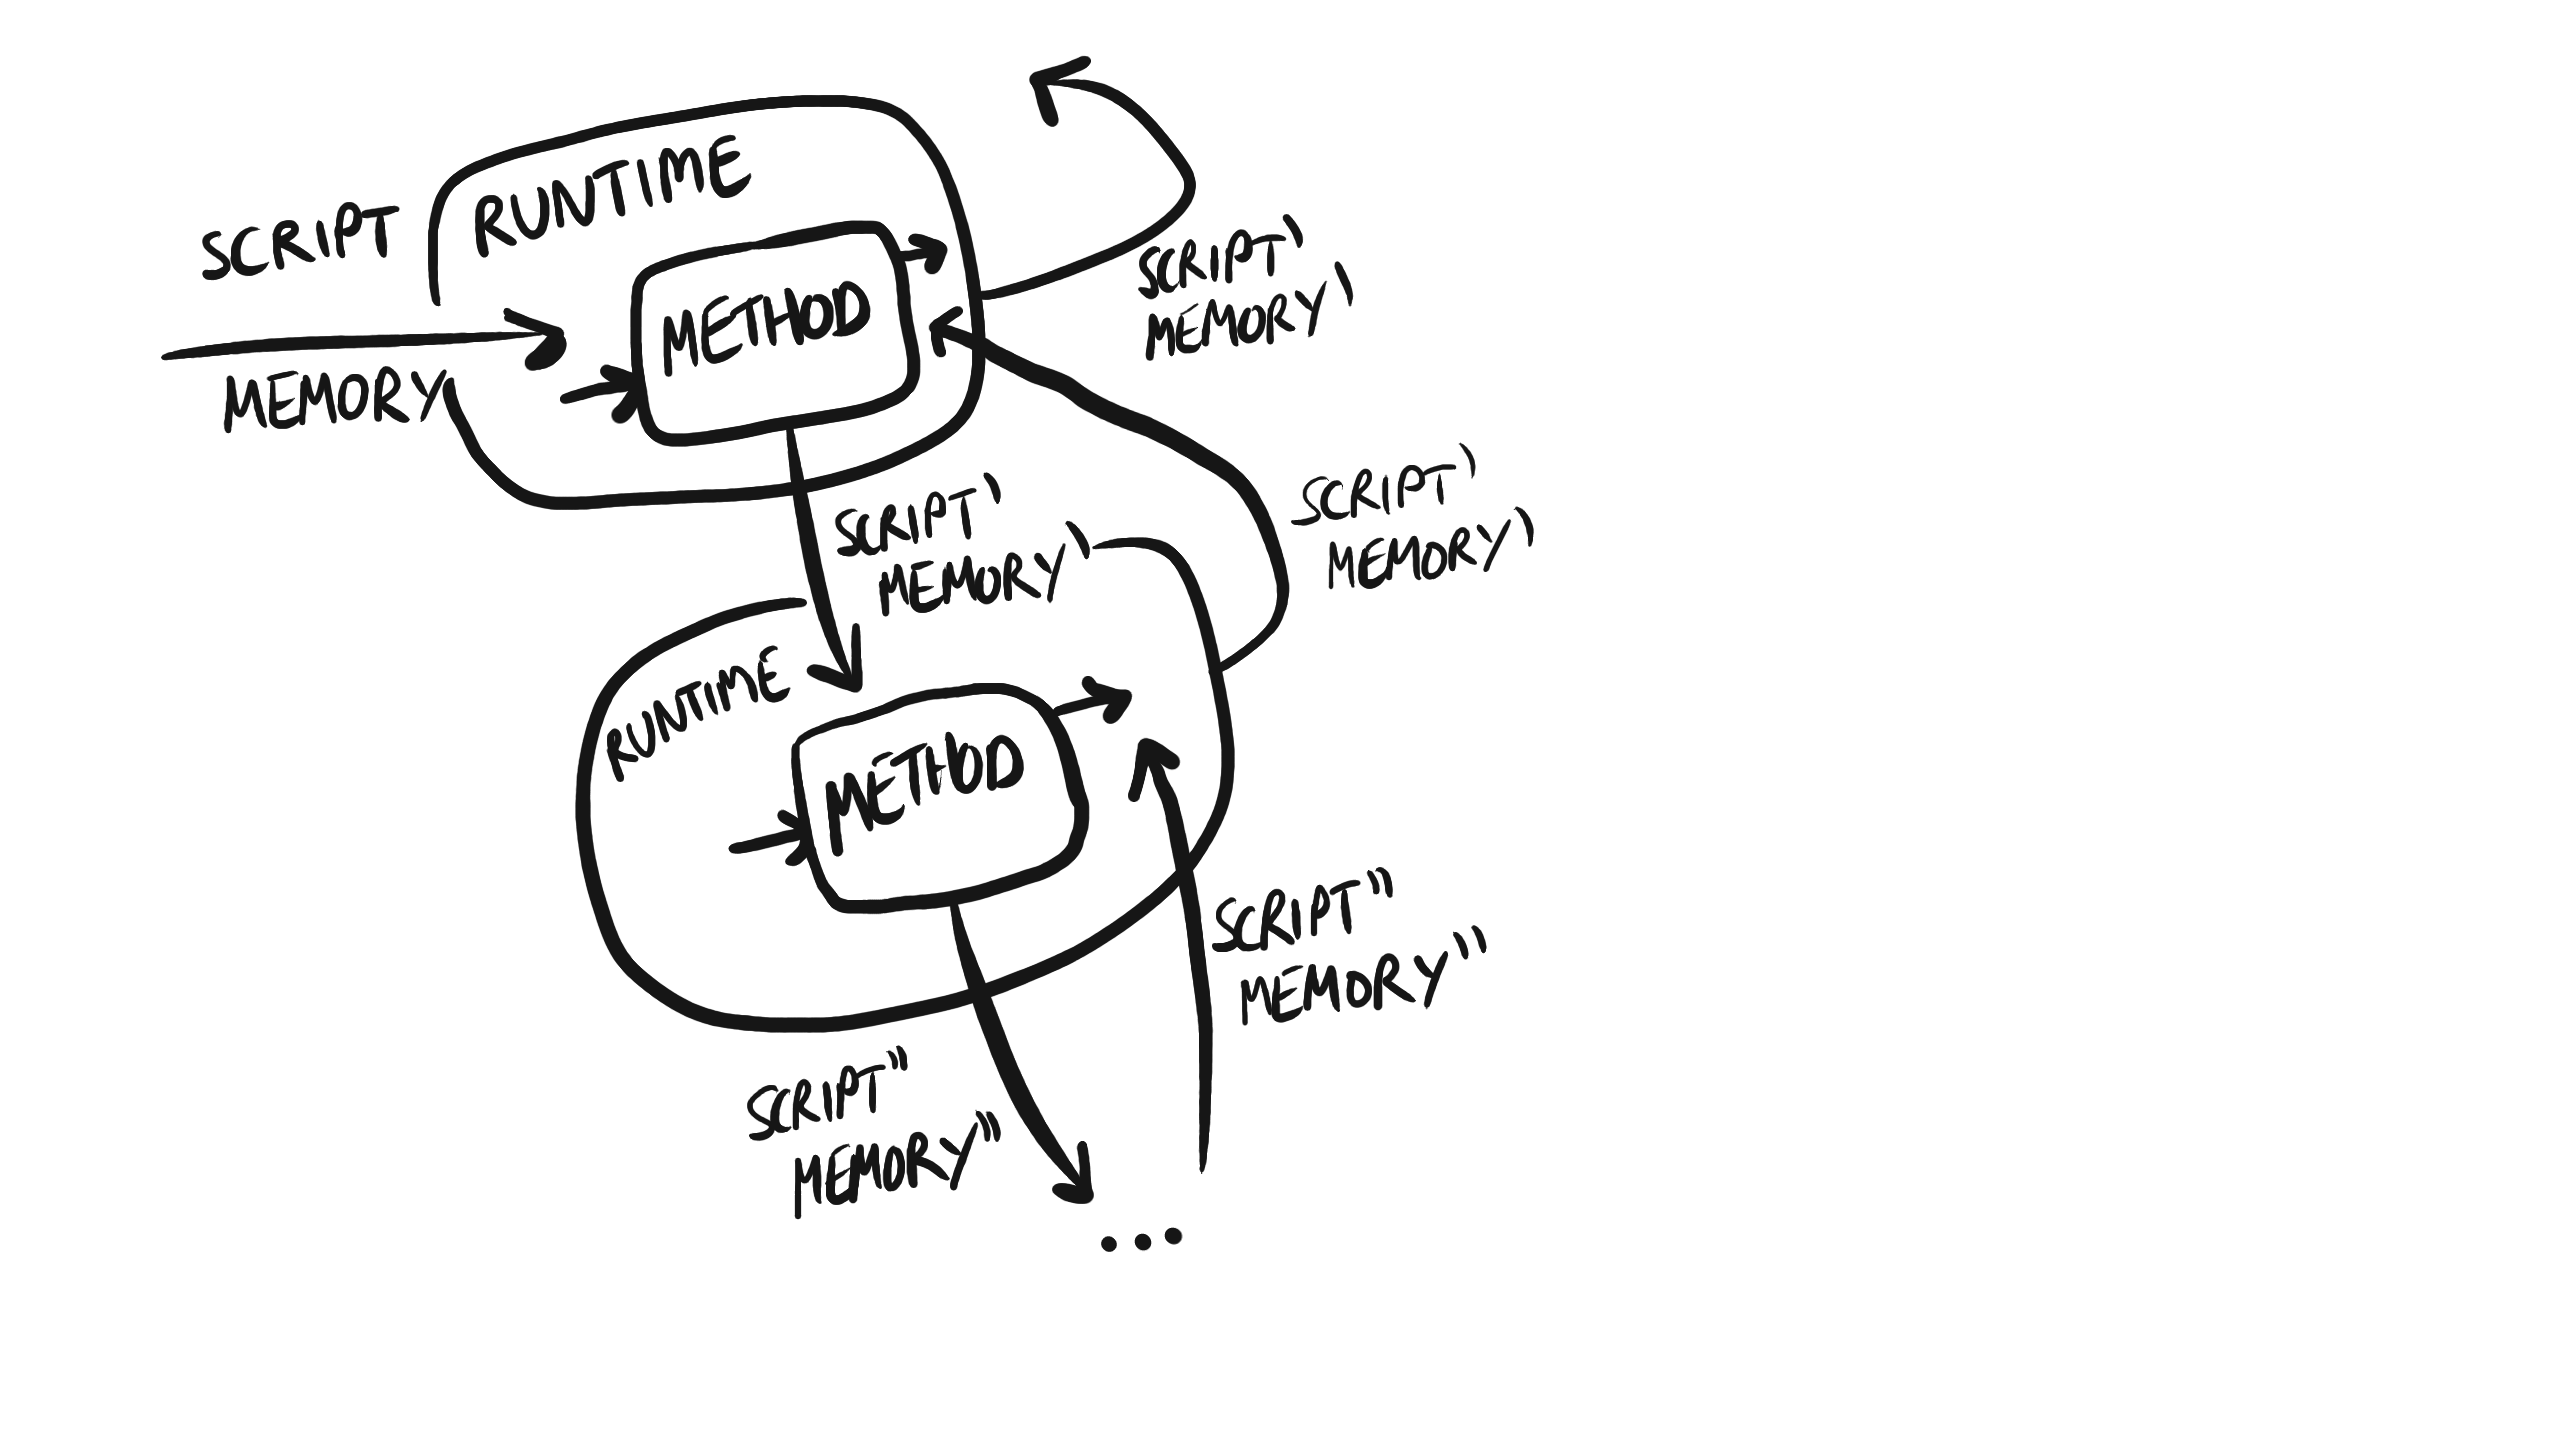 RUNTIME
SCRIPT
METHOD
MEMORY
SCRIPT'
MEMORY'
SCRIPT'
MEMORY'
SCRIPT'
MEMORY'
RUNTIME
METHOD
SCRIPT''
MEMORY''
SCRIPT''
MEMORY''
...